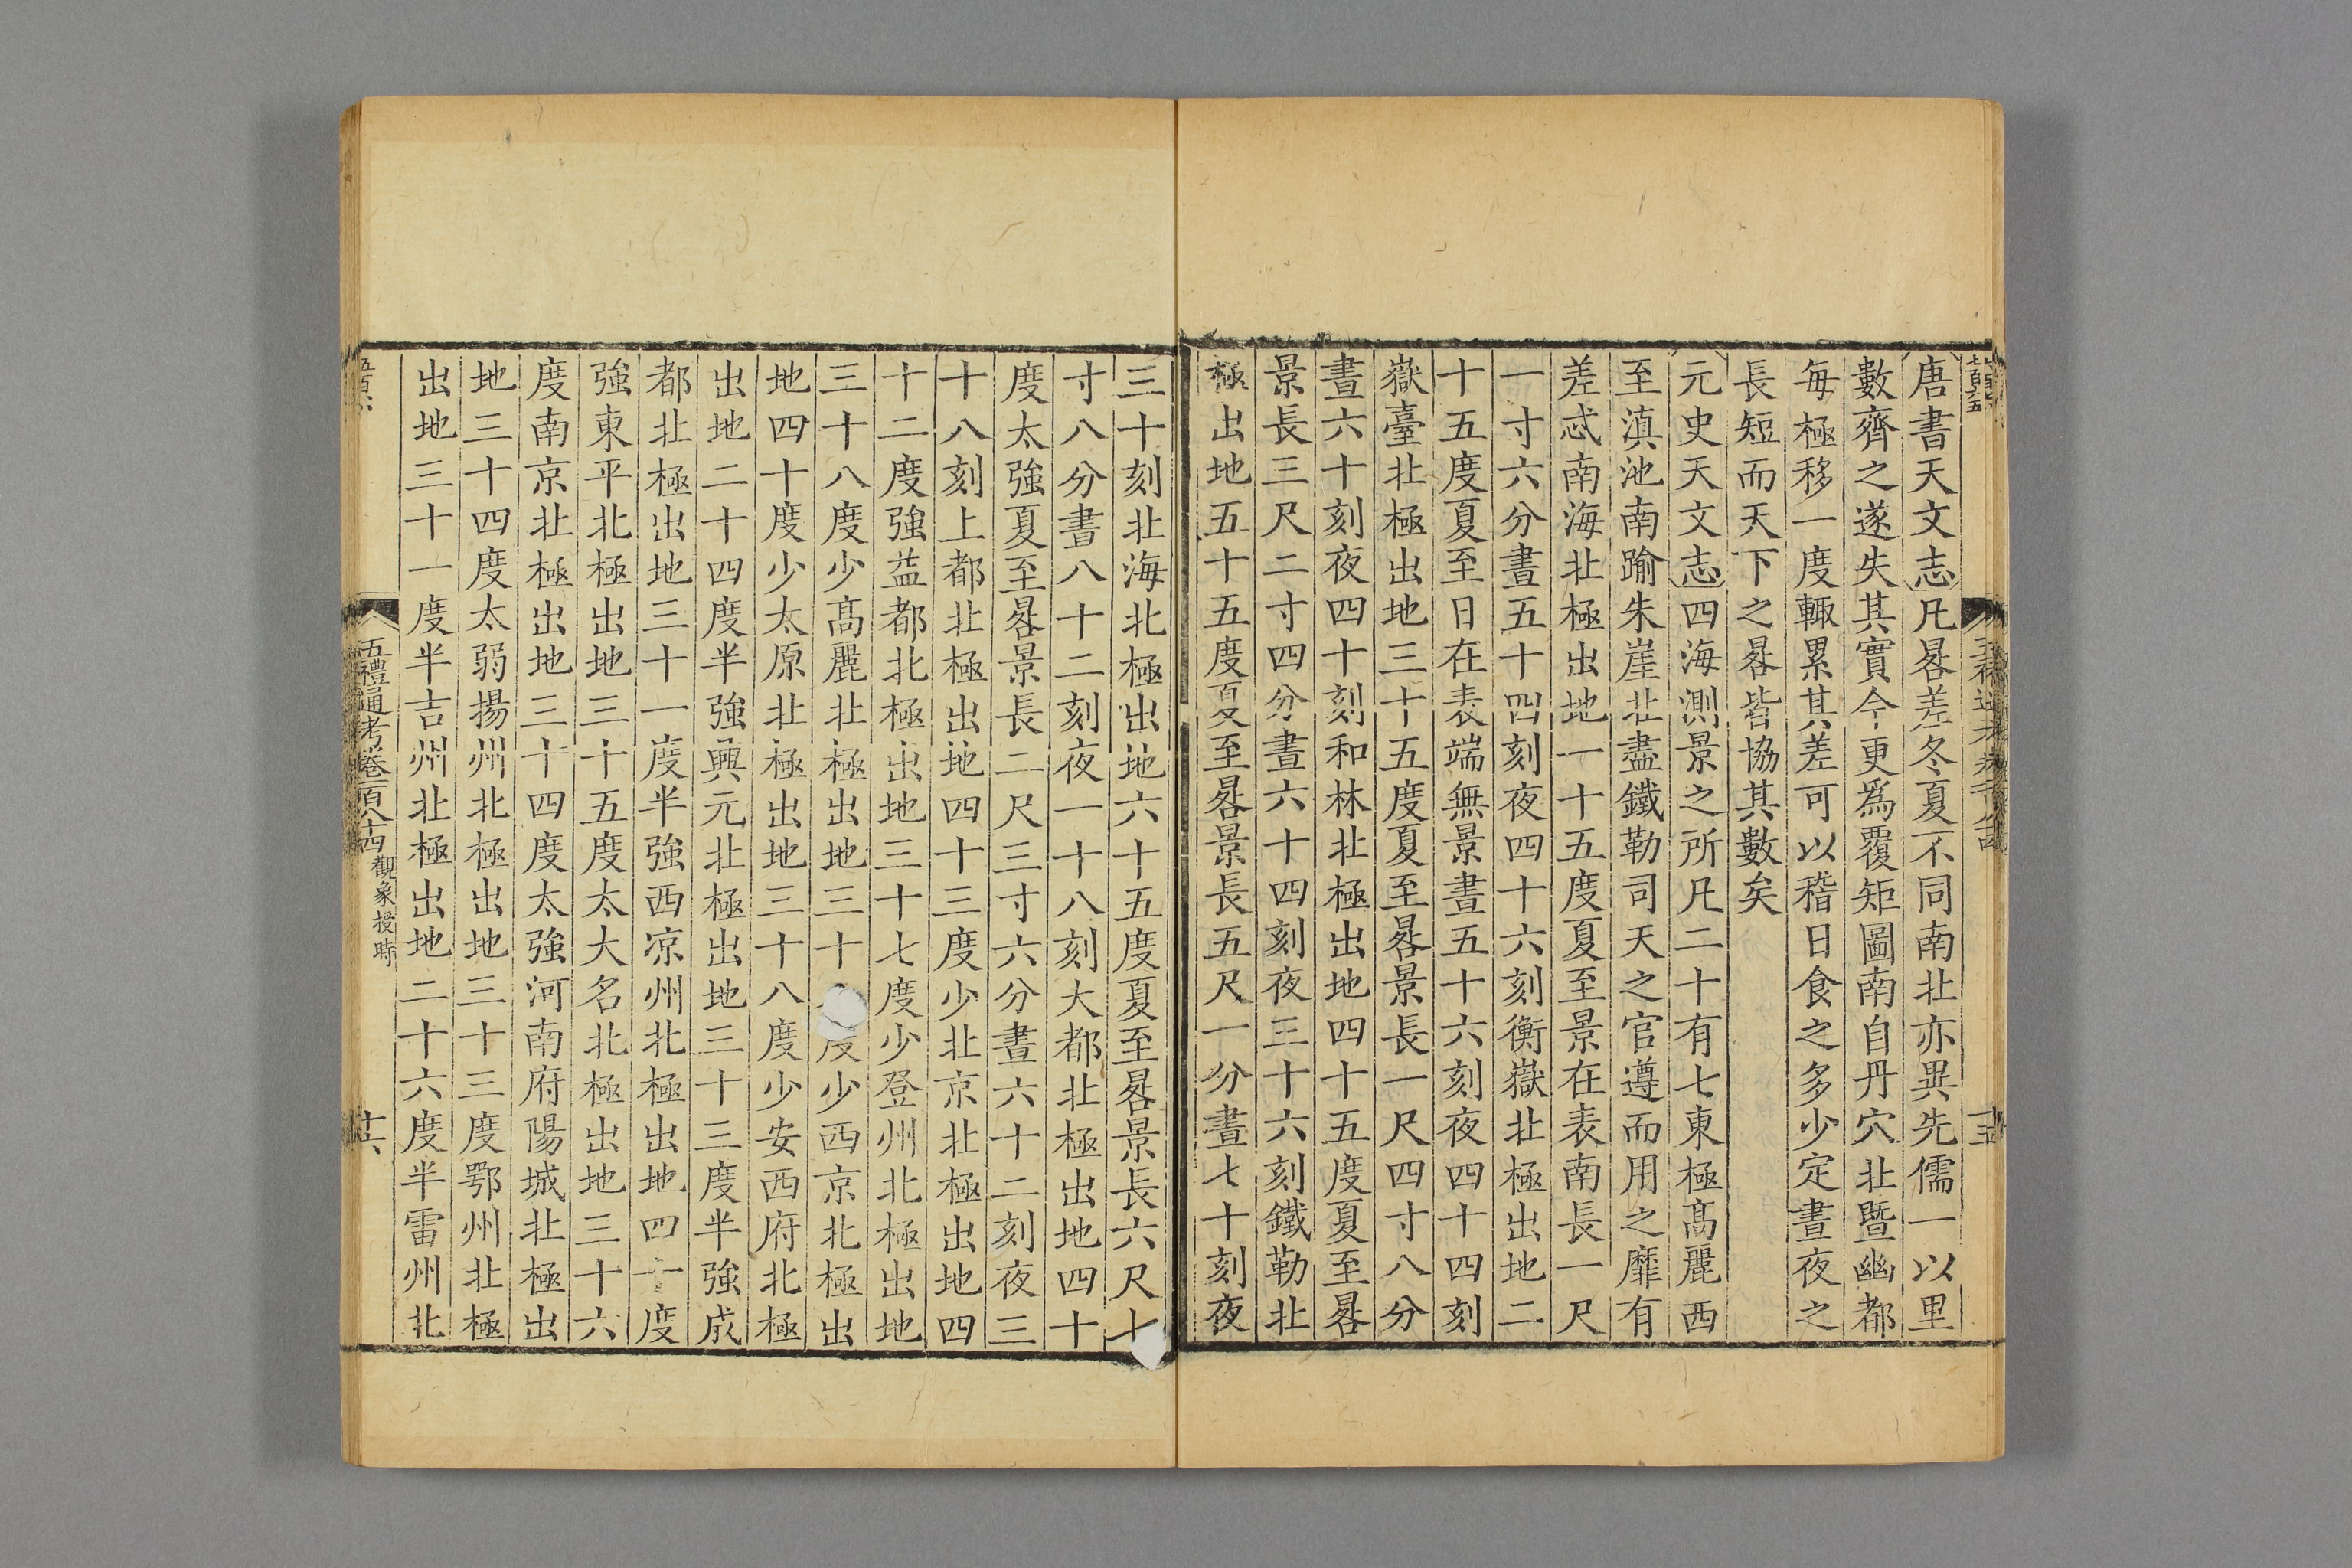 唐書天文志凡晷差冬夏不同南北亦異先儒一以里
數齊之遂失其實今更爲覆矩圖南自丹穴北暨幽都
每極移一度輒累其差可以稽日食之多少定晝夜之
長短而天下之晷皆協其數矣
元史天文志四海測景之所凡二十有七東極髙麗西
至滇池南踰朱崖北盡鐵勒司天之官遵而用之靡有
差忒南海北極出地一十五度夏至景在表南長一尺
一寸六分晝五十四刻夜四十六刻衡嶽北極出地二
十五度夏至日在表端無景晝五十六刻夜四十四刻
嶽臺北極出地三十五度夏至晷景長一尺四寸八分
晝六十刻夜四十刻和林北極出地四十五度夏至晷
景長三尺二寸四分晝六十四刻夜三十六刻鐵勒北
極出地五十五度夏至晷景長五尺一分晝七十刻夜
十五
三十刻北海北極出地六十五度夏至晷景長六尺七
寸八分晝八十二刻夜一十八刻大都北極出地四十
度太強夏至晷景長二尺三寸六分晝六十二刻夜三
十八刻上都北極出地四十三度少北京北極出地四
十二度強益都北極出地三十七度少登州北極出地
三十八度少髙麗北極出地三十度少西京北極出
地四十度少太原北極出地三十八度少安西府北極
出地二十四度半強興元北極出地三十三度半強成
都北極出地三十一度半強西凉州北極出地四十度
強東平北極出地三十五度太大名北極出地三十六
度南京北極出地三十四度太強河南府陽城北極出
地三十四度太弱揚州北極出地三十三度鄂州北極
出地三十一度半吉州北極出地二十六度半雷州北
五禮通考卷一百八十四 觀象授時
十六